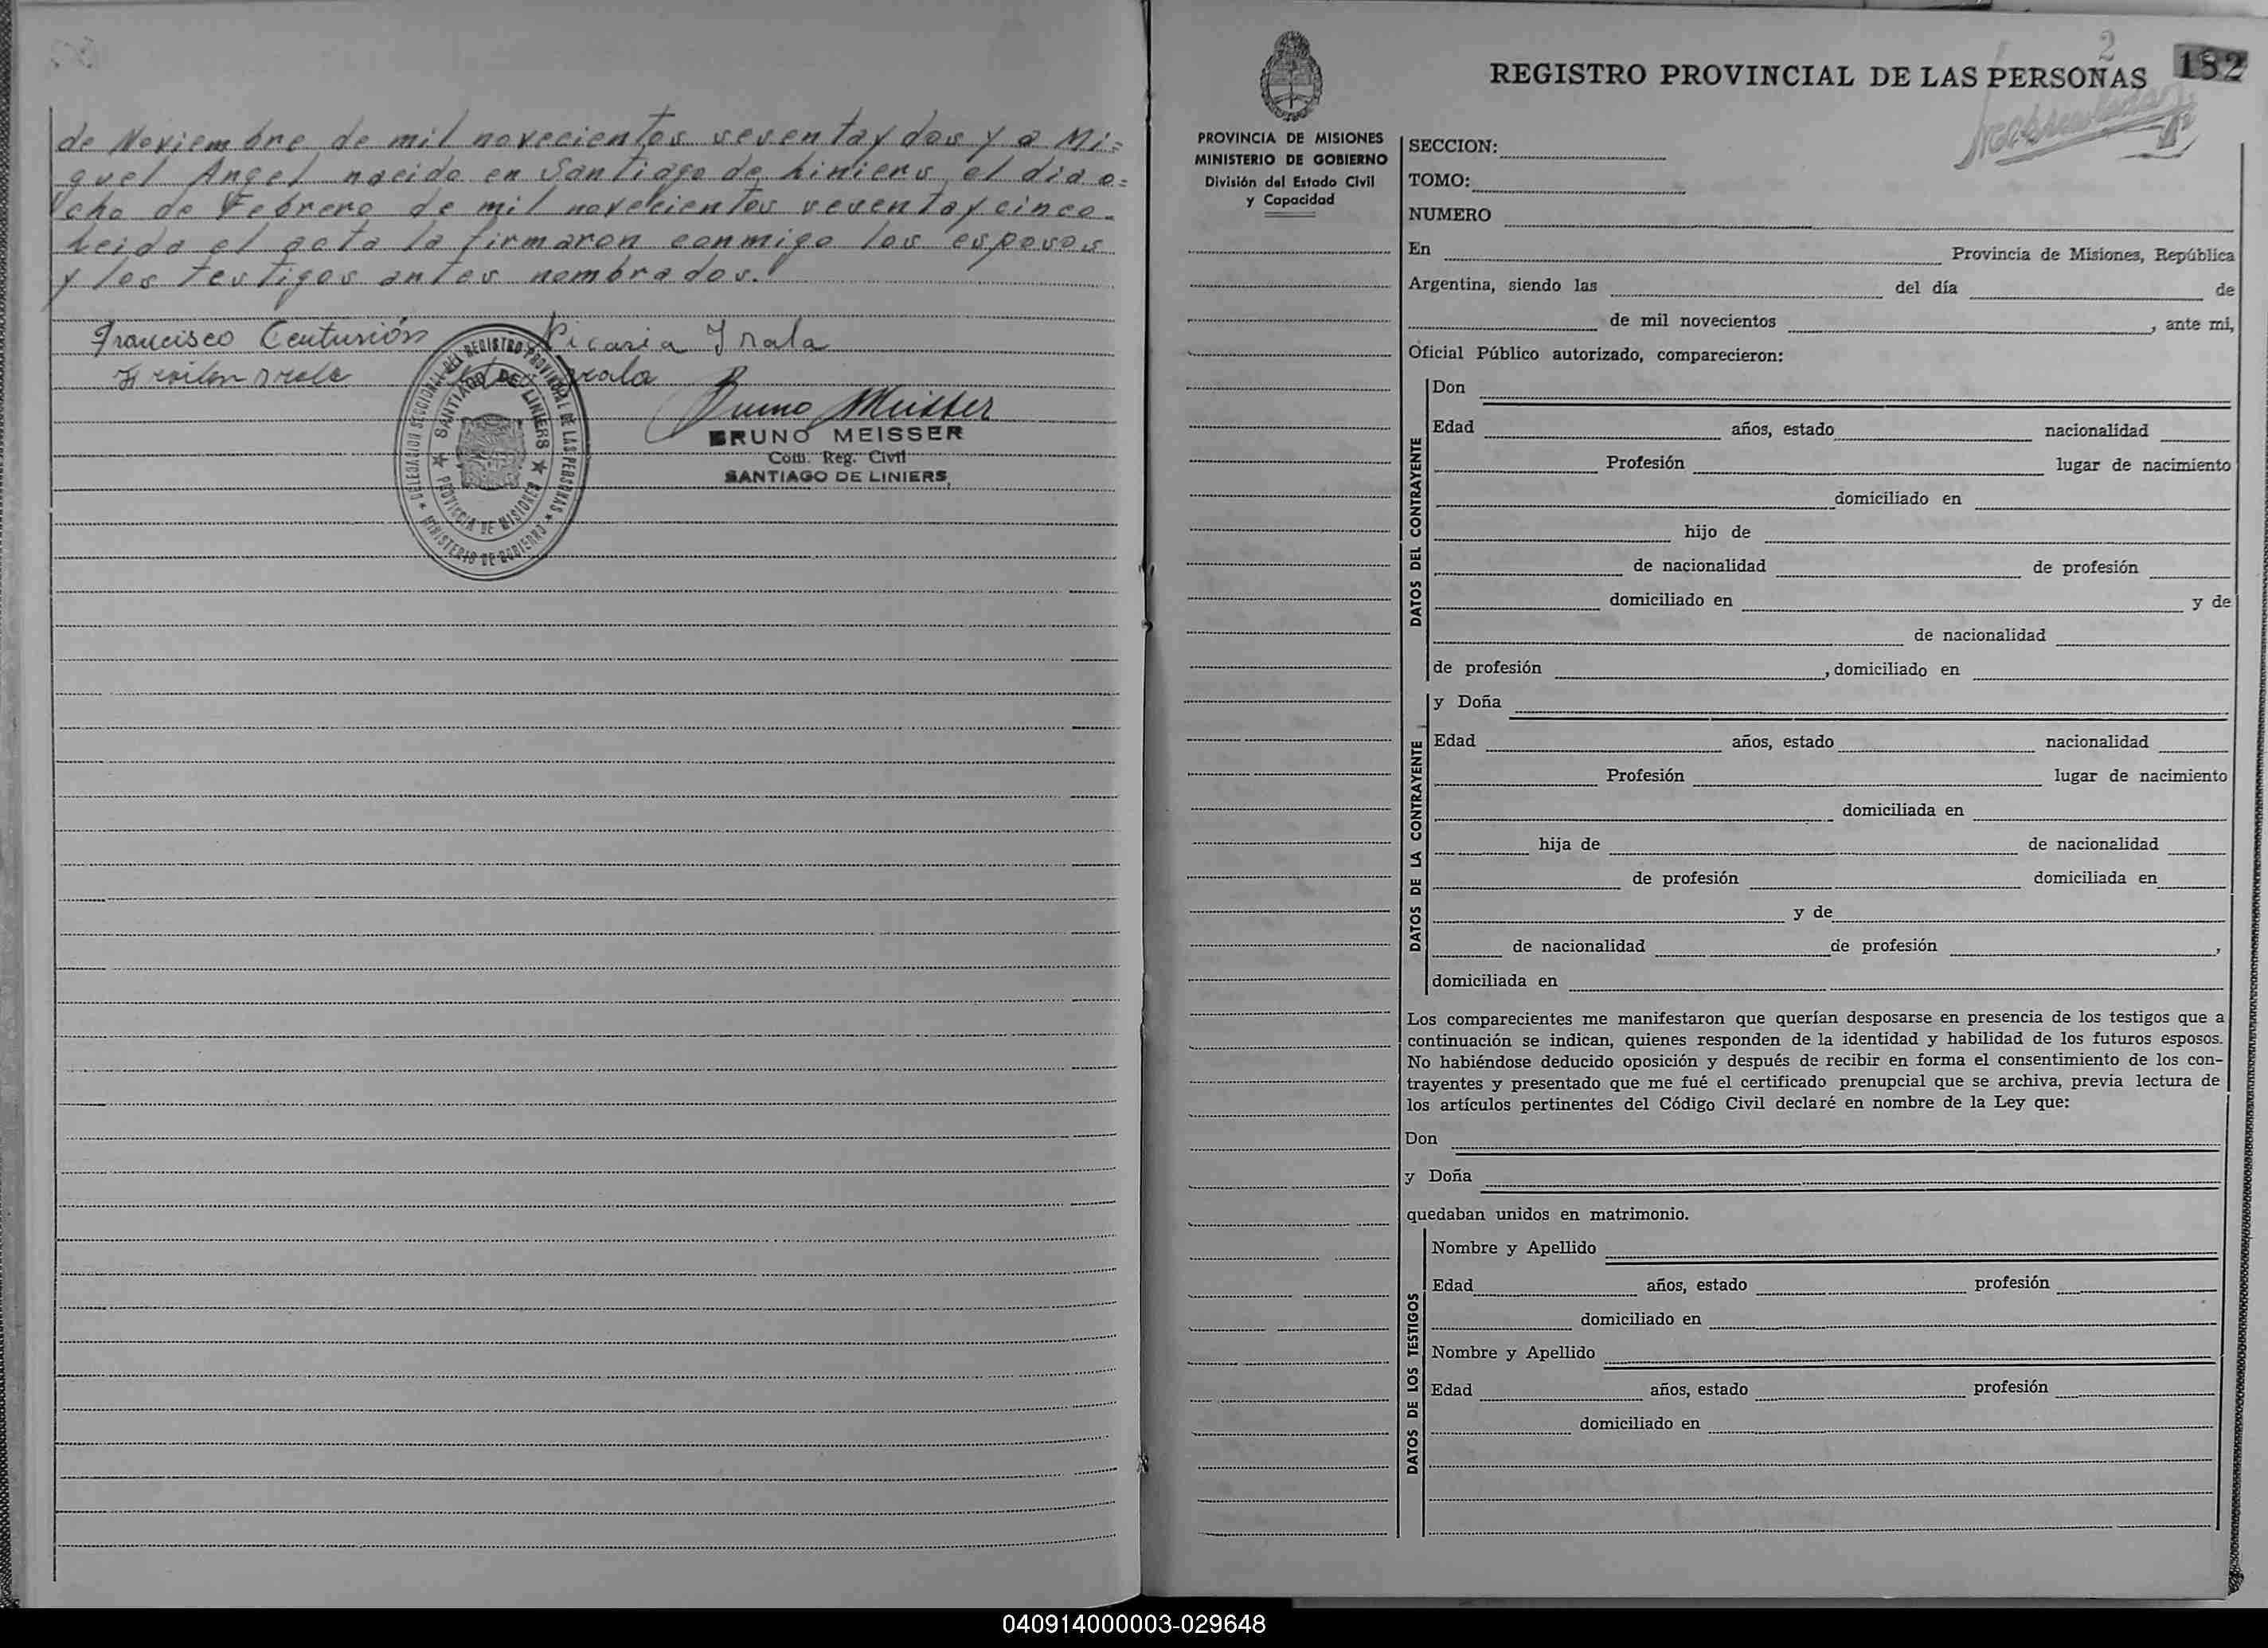 de Noviembre de mil novecientos sesenta y dos y a Mi=
guel Angel nacido en Santiago de Liniers el día o=
cho de Febrero de mil novecientos sesenta y cinco.
Leida el acta la firmaron conmigo los esposos
y los testigos antes nombrados.
Francisco Centurión Nicasia Irala
Irala
Bruno Meisser
BRUNO MEISSER
Com. Reg. Civil
SANTIAGO DE LINIERS
DELEGACION SECCIONAL DEL REGISTRO PROVINCIAL DE LAS PERSONAS
MINISTERIO DE GOBIERNO
SANTIAGO DE LINIERS
PROVINCIA DE MISIONES
2
182
REGISTRO PROVINCIAL DE LAS PERSONAS
PROVINCIA DE MISIONES
MINISTERIO DE GOBIERNO
División del Estado Civil
y Capacidad
SECCION:
TOMO:
NUMERO
En Provincia de Misiones, República
Argentina, siendo las del día de
de mil novecientos , ante mi,
Oficial Público autorizado, comparecieron:
DATOS DEL CONTRAYENTE
Don
Edad años, estado nacionalidad
Profesión lugar de nacimiento
domiciliado en
hijo de
de nacionalidad de profesión
domiciliado en y de
de nacionalidad
de profesión , domiciliado en
DATOS DE LA CONTRAYENTE
y Doña
Edad años, estado nacionalidad
Profesión lugar de nacimiento
domiciliada en
hija de de nacionalidad
de profesión domiciliada en
y de
de nacionalidad de profesión ,
domiciliada en
Los comparecientes me manifestaron que querían desposarse en presencia de los testigos que a
continuación se indican, quienes responden de la identidad y habilidad de los futuros esposos.
No habiéndose deducido oposición y después de recibir en forma el consentimiento de los con-
trayentes y presentado que me fué el certificado prenupcial que se archiva, previa lectura de
los artículos pertinentes del Código Civil declaré en nombre de la Ley que:
Don
y Doña
quedaban unidos en matrimonio.
DATOS DE LOS TESTIGOS
Nombre y Apellido
Edad años, estado profesión
domiciliado en
Nombre y Apellido
Edad años, estado profesión
domiciliado en
040914000003-029648